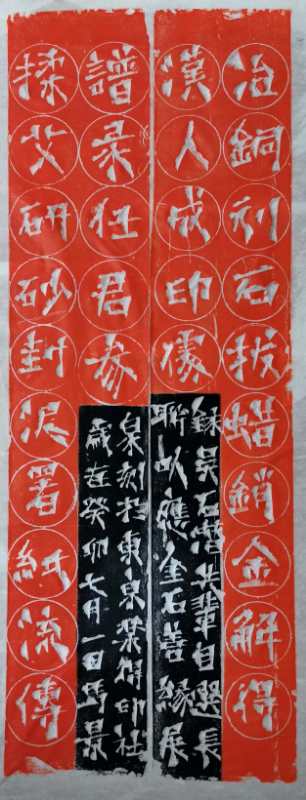 冶銅刻石拔蠟銷金解得
漢人成印
錄吳石潛先輩自選長
聯以應金石善緣展
揉艾研砂封泥署紙流傳
譜录任君参
歲在癸卯七月一日景
泉刻於東泉業餘印社